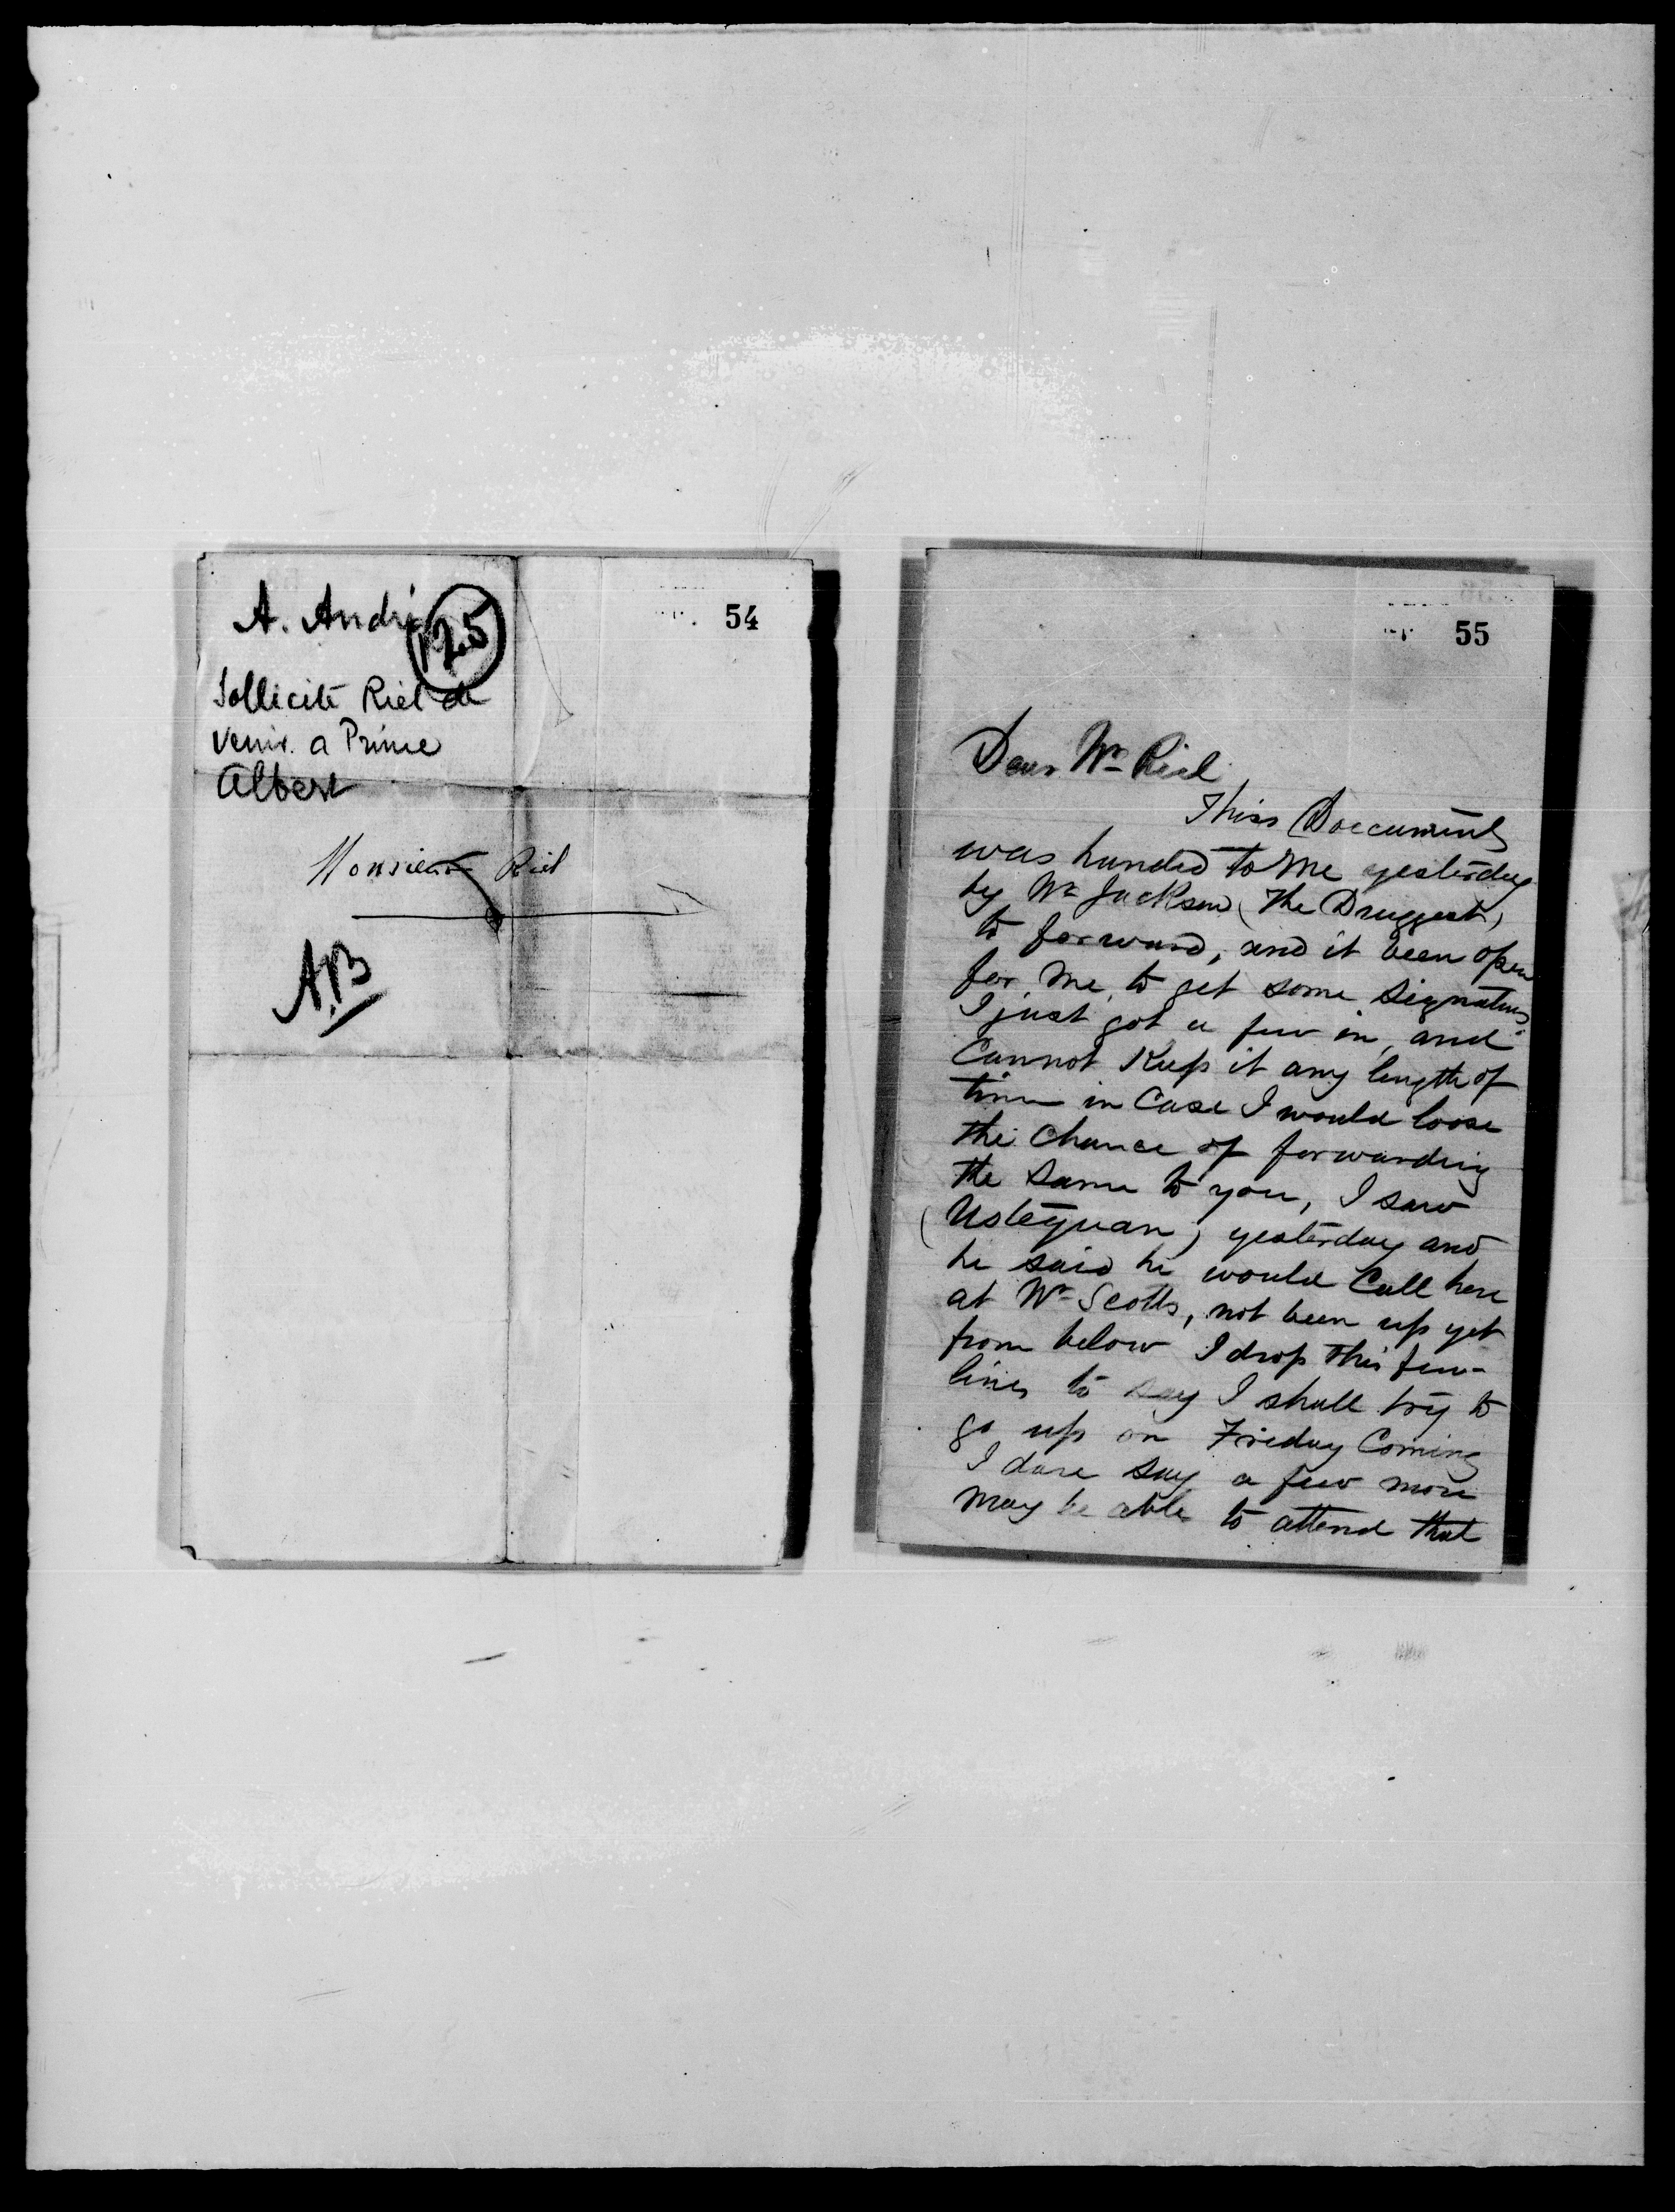 A. André
125
54
Sollicite Riel de
venir a Prince
Albert
Monsieur Riel
A.B
55
Dear Mr Riel
This Doccument
was handed to me yesterday
by Mr Jackson (the Druggest)
to forward, and it been open
for me to get some signatures.
I just got a few in, and
Cannot Keep it any length of
time in Case I would loose
the Chance of forwarding
the same to you, I saw
(Usteyuan) yesterday and
he said he would Call here
at Mr Scotts, not been up yet
from below I drop this few
lines to say I shall try to
go up on Friday Coming
I dare say a few more
may be able to attend that